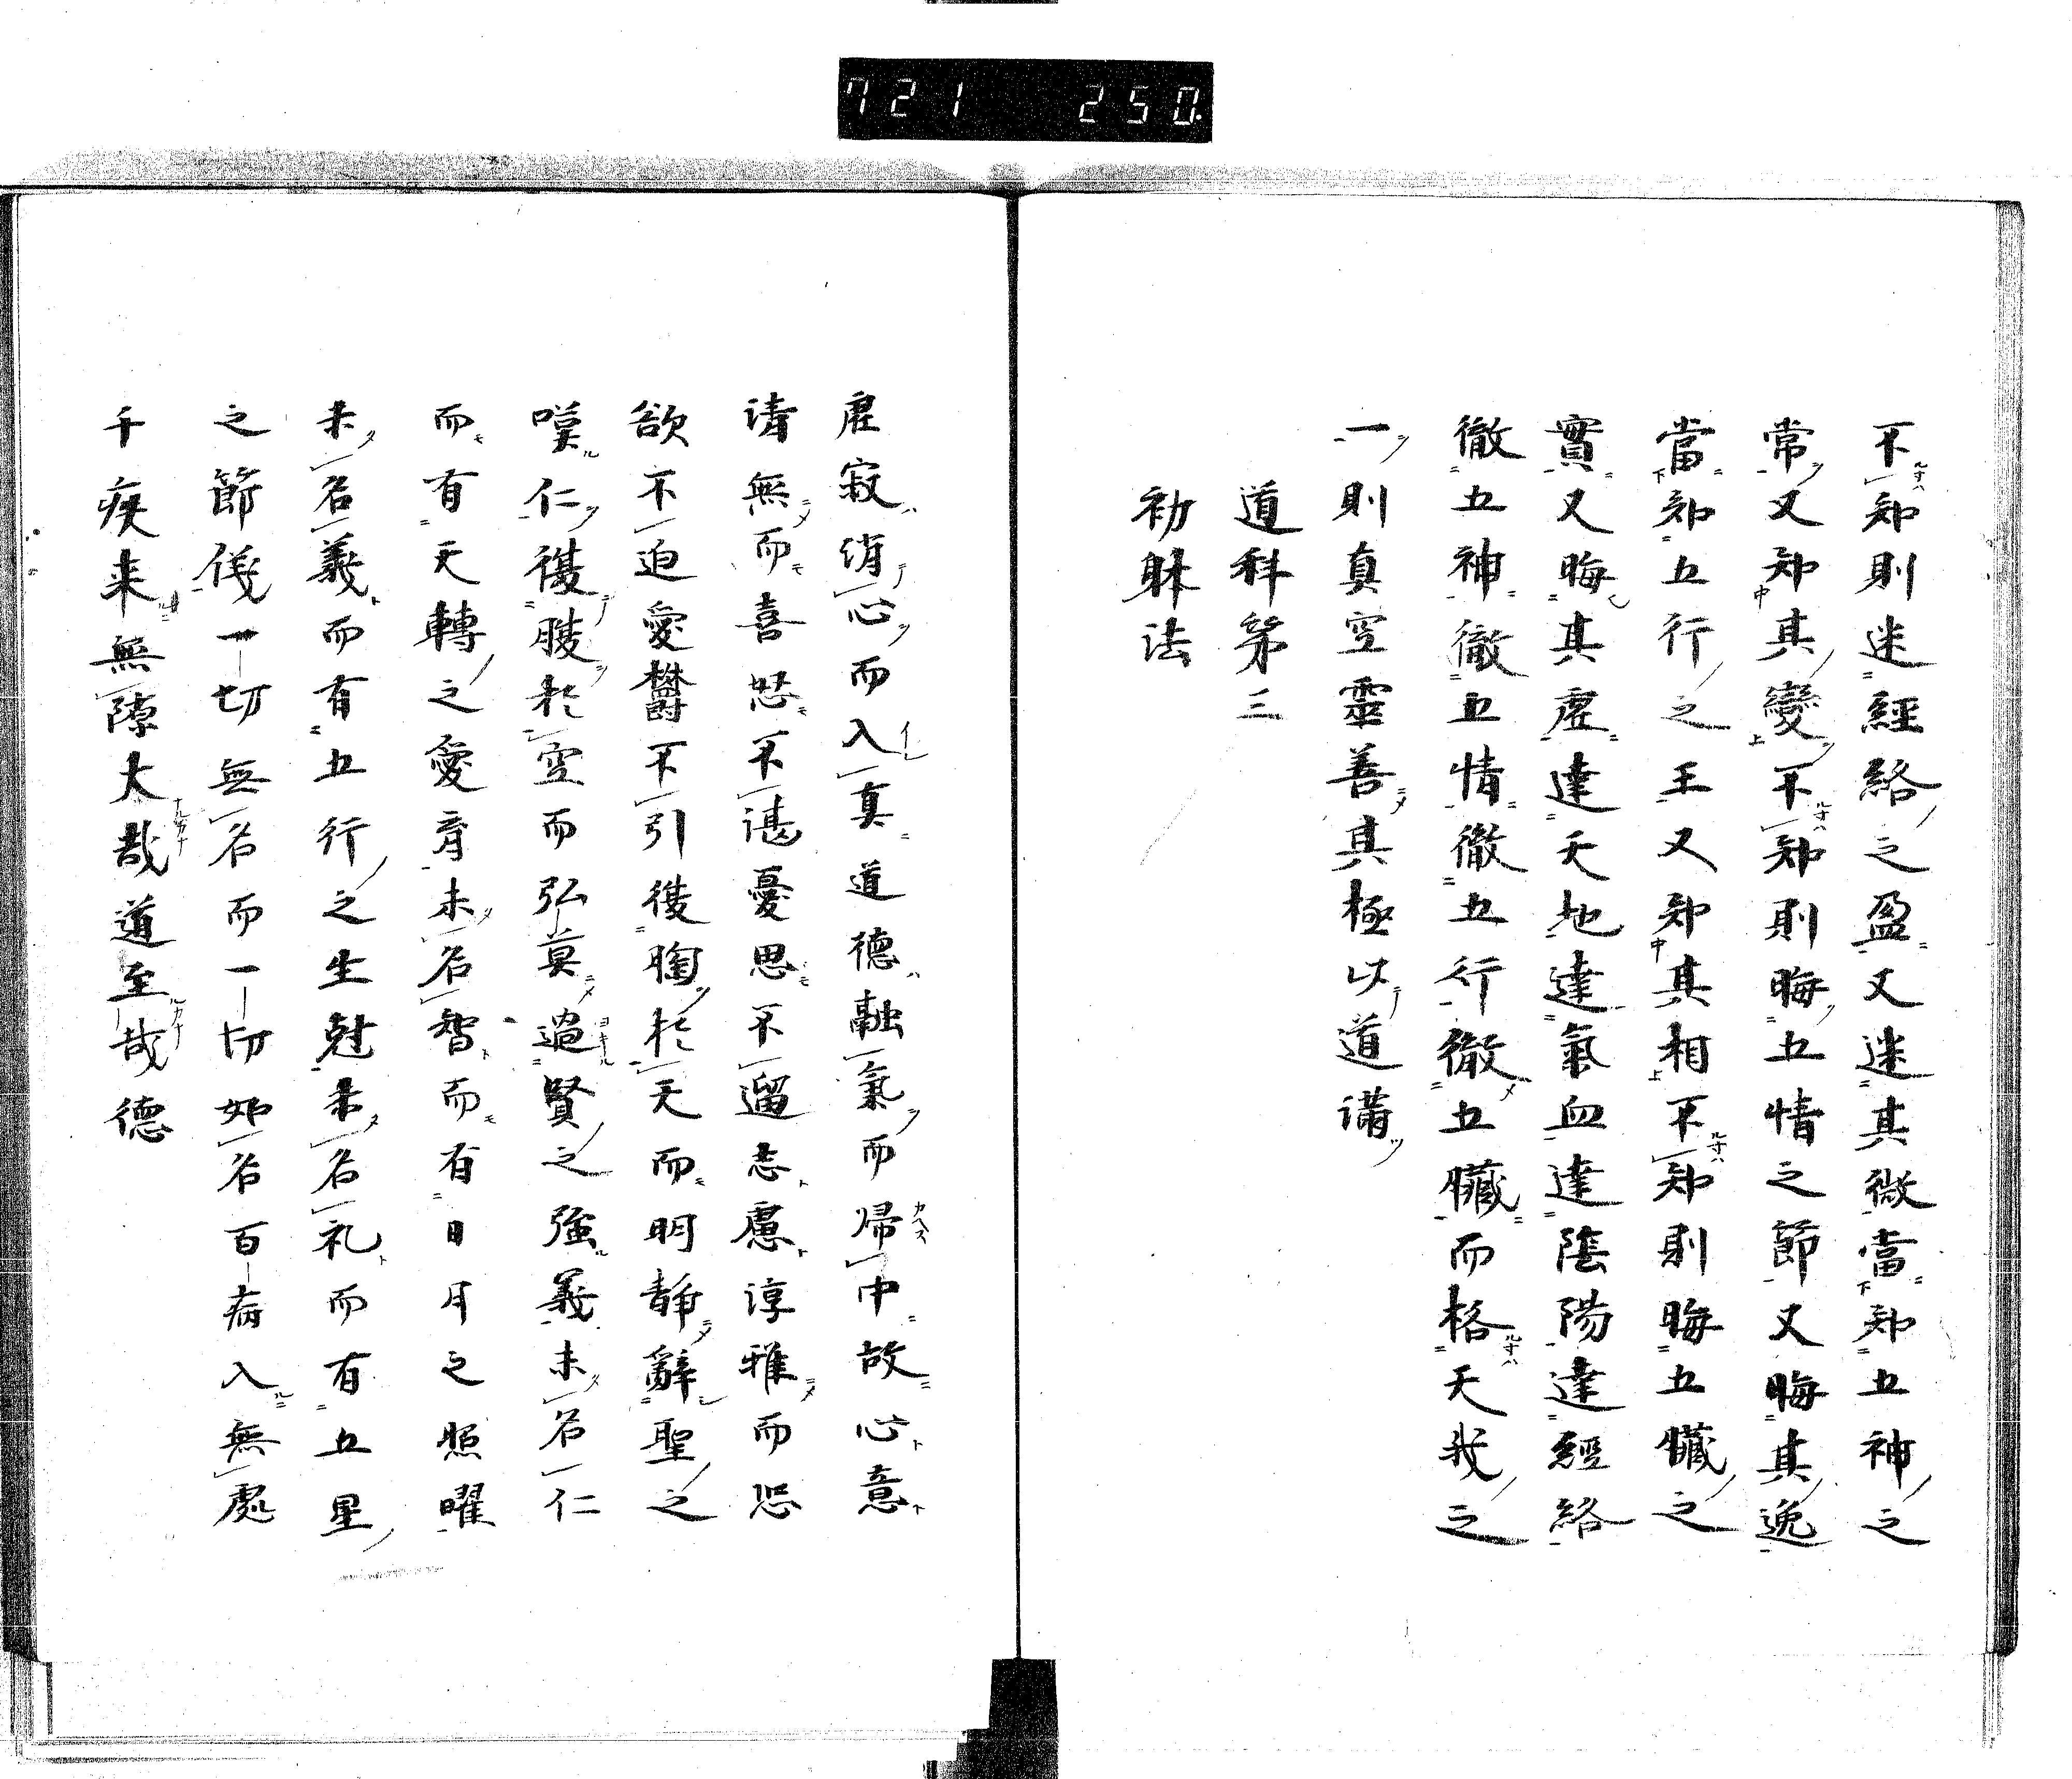 721 250
不知則迷經絡之盈又迷其微當知五神之
常又知其變不知則晦五情之節又晦其逸
當知五行之王又知其相不知則晦五臓之
實又晦其虚達天地達氣血達陰陽達經絡
徹五神徹五情徹五行徹五臓而格天我之
一則真空靈善其極以道満
道科第三
初躰法
虚寂消心而入真道德融氣而帰中故心意
清無而喜怒不諶憂思不遛志慮淳雅而恐
欲不迫愛欝不引後胸於天而明静辭聖之
嘆仁復腹於空而弘莫過賢之強義未名仁
而有天轉之愛育未名智而有日月之照曜
未名義而有五行之生尅未名礼而有五星
之節儀一切無名而一切如名百病入無處
千疾来無隙大哉道至哉德